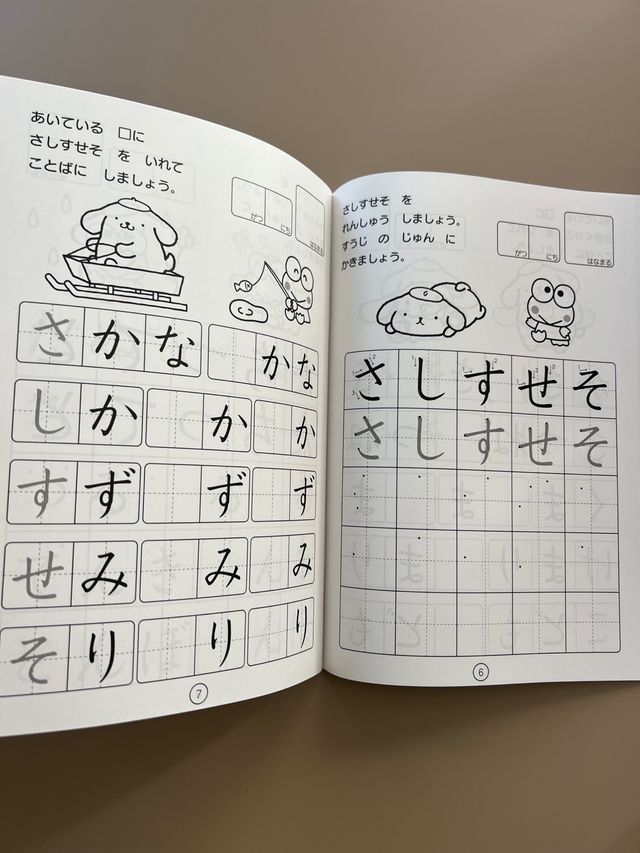 あいている □に
さしすせそ を いれて
ことばに しましょう。
がつ にち
はなまる
さかな かな
しか か か
すず ず ず
せみ み み
そり り り
7
さしすせそ を
れんしゅう しましょう。
すうじ の じゅん に
かきましょう。
がつ にち
はなまる
さ し す せ そ
さ し す せ そ
6